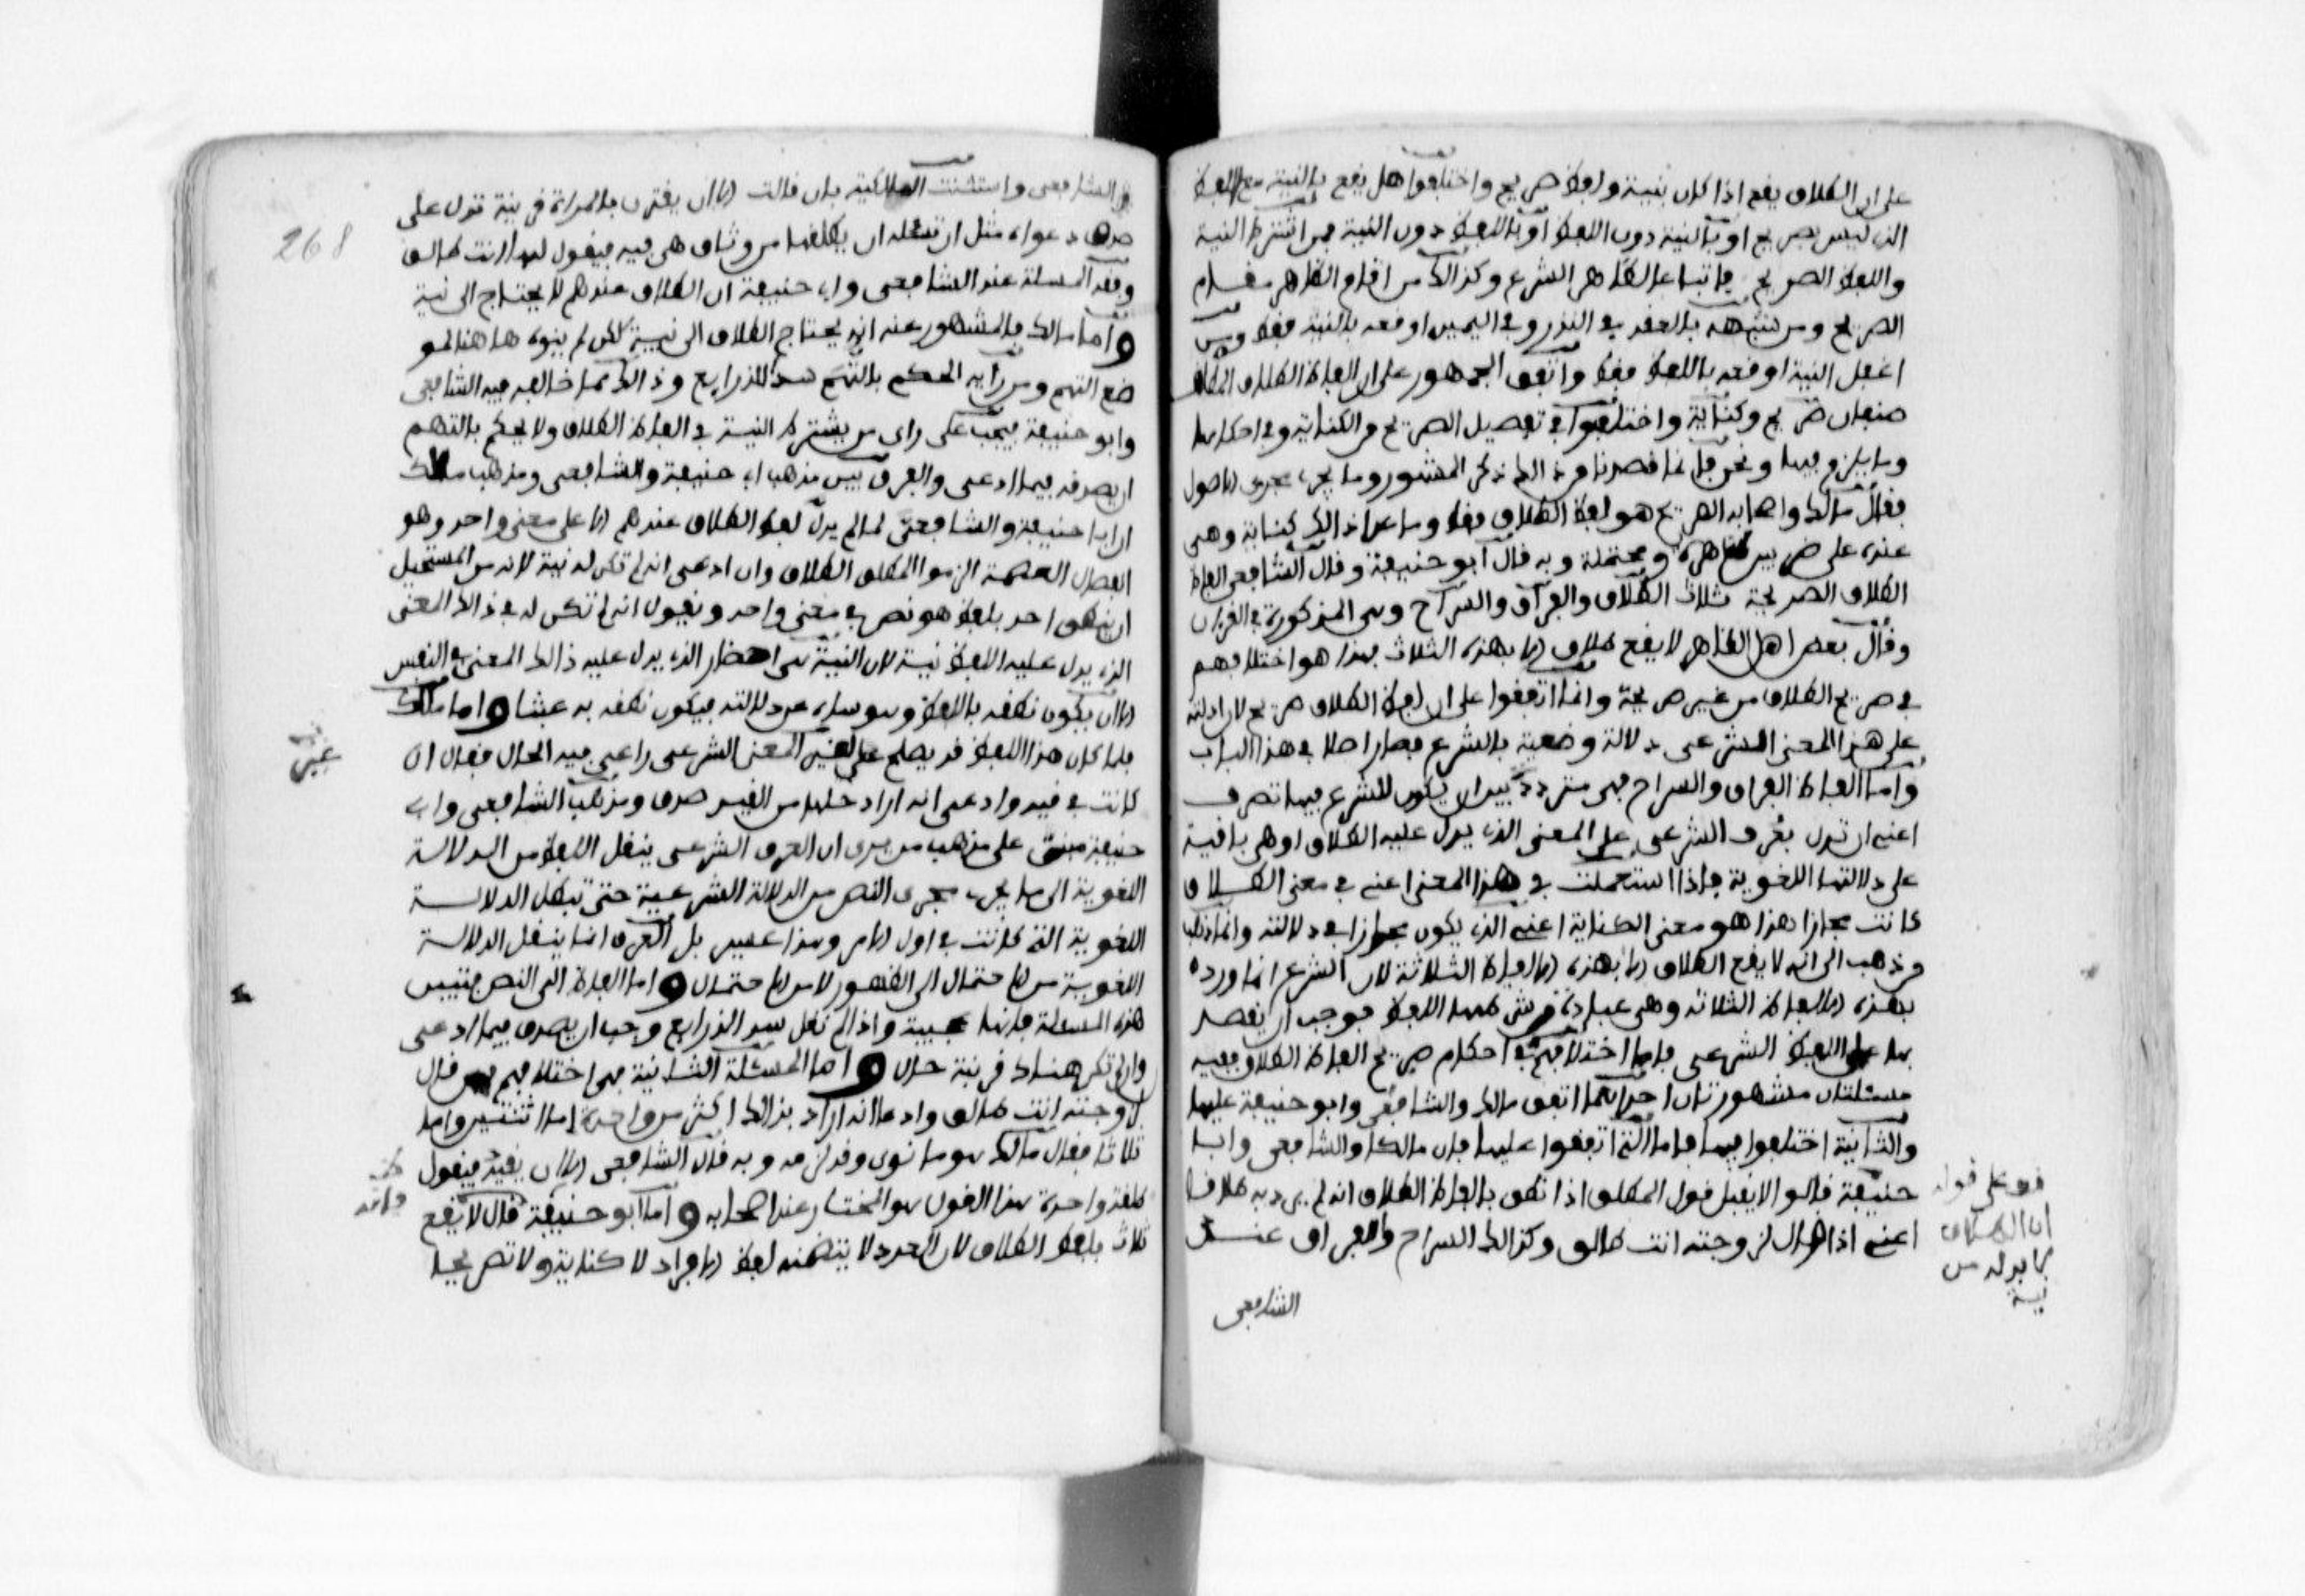 على ان الطلاق يقع اذا كان بنية ولفظ صريح واختلفوا هل يقع بالنية مع اللفظ
الذي ليس بصريح او بالنية دون اللفظ او باللفظ دون النية فمن اشترط النية
واللفظ الصريح فاتباعا لظاهر الشرع وكذالك من اقام الظاهر مقام
الصريح ومن شبهه بالعقد في النذر وفي اليمين اوقعه بالنية فقط ومن
اعمل النية اوقعه باللفظ فقط واتفق الجمهور على ان الفاظ الطلاق المطلق
صنفان صريح وكناية واختلفوا في تفصيل الصريح من الكناية وفي احكامها
وما يلزم فيها ونحن فانما قصدنا من ذالك ذكر المشهور وما يجري مجرى الاصول
فقال مالك واصحابه الصريح هو لفظ الطلاق فقط وما عدا ذالك كناية وهي
عنده على ضربين ظاهرة ومحتملة وبه قال ابو حنيفة وقال الشافعي الفاظ
الطلاق الصريحة ثلاث الطلاق والفراق والسراح وهي المذكورة في القرءان
وقال بعض اهل الظاهر لا يقع طلاق الا بهذه الثلاث فهذا هو اختلافهم
في صريح الطلاق من غير صريحة وانما اتفقوا على ان لفظ الطلاق صريح لان دلالته
على هذا المعنى الشرعي دلالة وضعية بالشرع فصار اصلا في هذا الباب
واما الفاظ الفراق والسراح فهي مترددة بين ان يكون للشرع فيها تصرف
اعني ان تدل بعرف الشرعي على المعنى الذي يدل عليه الطلاق او هي باقية
على دلالتها اللغوية فاذا استعملت في هذا المعنى اعني في معنى الطلاق
كانت مجازا هذا هو معنى الكناية اعني الذي يكون مجازا في دلالته وانما ذهب
من ذهب الى انه لا يقع الطلاق الا بهذه الالفاظ الثلاثة لان الشرع انما ورد
بهذه الالفاظ الثلاثة وهي عبادة من شرطها اللفظ فوجب ان يقتصر
بها على اللفظ الشرعي فاما اختلافهم في احكام صريح الفاظ الطلاق ففيه
مسئلتان مشهورتان احداهما اتفق مالك والشافعي وابو حنيفة عليها
والثانية اختلفوا فيها فاما التي اتفقوا عليها فان مالكا والشافعي وابا
حنيفة قالوا لا يقبل قول المطلق اذا نطق بالفاظ الطلاق انه لم يرد به طلاقا
اعني اذا قال لزوجته انت طالق وكذالك السراح والفراق عند
الشافعي
قف على قوله
ان الطلاق
لا بد له من
نية
الشافعي واستثنت المالكية بان قالت الا ان يقترن بالمراة قرينة تدل على
صدق دعواه مثل ان تسئله ان يطلقها من وثاق هي فيه فيقول لها انت طالق
وفقه المسئلة عند الشافعي وابي حنيفة ان الطلاق عندهم لا يحتاج الى نية
واما مالك فالمشهور عنه انه يحتاج الطلاق الى نية لكن لم ينوه هاهنا لمو
ضع التهم ومن رايه الحكم بالتهم سد الذرايع وذالك مما خالفه فيه الشافعي
وابو حنيفة فيجب على راي من يشترط النية في الفاظ الطلاق ولا يحكم بالتهم
ان يصدقه فيما ادعى والفرق بين مذهب ابي حنيفة والشافعي ومذهب مالك
ان ابا حنيفة والشافعي لما لم يدل لفظ الطلاق عندهم الا على معنى واحد وهو
انفصال العصمة الزموا المطلق الطلاق وان ادعى انه لم تكن له نية لانه من المستحيل
ان ينطق احد بلفظ هو نص في معنى واحد ويقول انه لم تكن له في ذالك المعنى
الذي يدل عليه اللفظ نية لان النية هي احضار الذي يدل عليه ذالك المعنى في النفس
الا ان يكون نطقه باللفظ وهو ساه عن دلالته فيكون نطقه به عبثا واما مالك
فلما كان هذا اللفظ قد يصلح على لغير المعنى الشرعي راعى فيه الحال فقال ان
كانت في قيد وادعى انه اراد حلها من القيد صدق ومذهب الشافعي وابي
حنيفة مبني على مذهب من يرى ان العرف الشرعي ينقل اللفظ من الدلالة
اللغوية الى ما يجري مجرى النص من الدلالة الشرعية حتى تبطل الدلالة
اللغوية التي كانت في اول الامر وهذا عسير بل العرف انما ينقل الدلالة
اللغوية من الاحتمال الى الظهور لا من الاحتمال واما الفاظ الى النص فتبين
هذه المسئلة فانها عجيبة واذا لم نقل بسد الذرايع وجب ان يصدق فيما ادعى
وان لم تكن هناك قرينة حال واما المسئلة الثانية فهي اختلافهم فيمن قال
لزوجته انت طالق وادعا انه اراد بذالك اكثر من واحدة اما اثنتين واما
ثلاثا فقال مالك هو ما نوى وقد لزمه وبه قال الشافعي الا ان يقيد فيقول
طلقة واحدة هذا القول هو المختار عند اصحابه واما ابو حنيفة فقال لا يقع
ثلاث بلفظ الطلاق لان العدد لا يتضمنه لفظ الافراد لا كناية ولا تصريحا
268